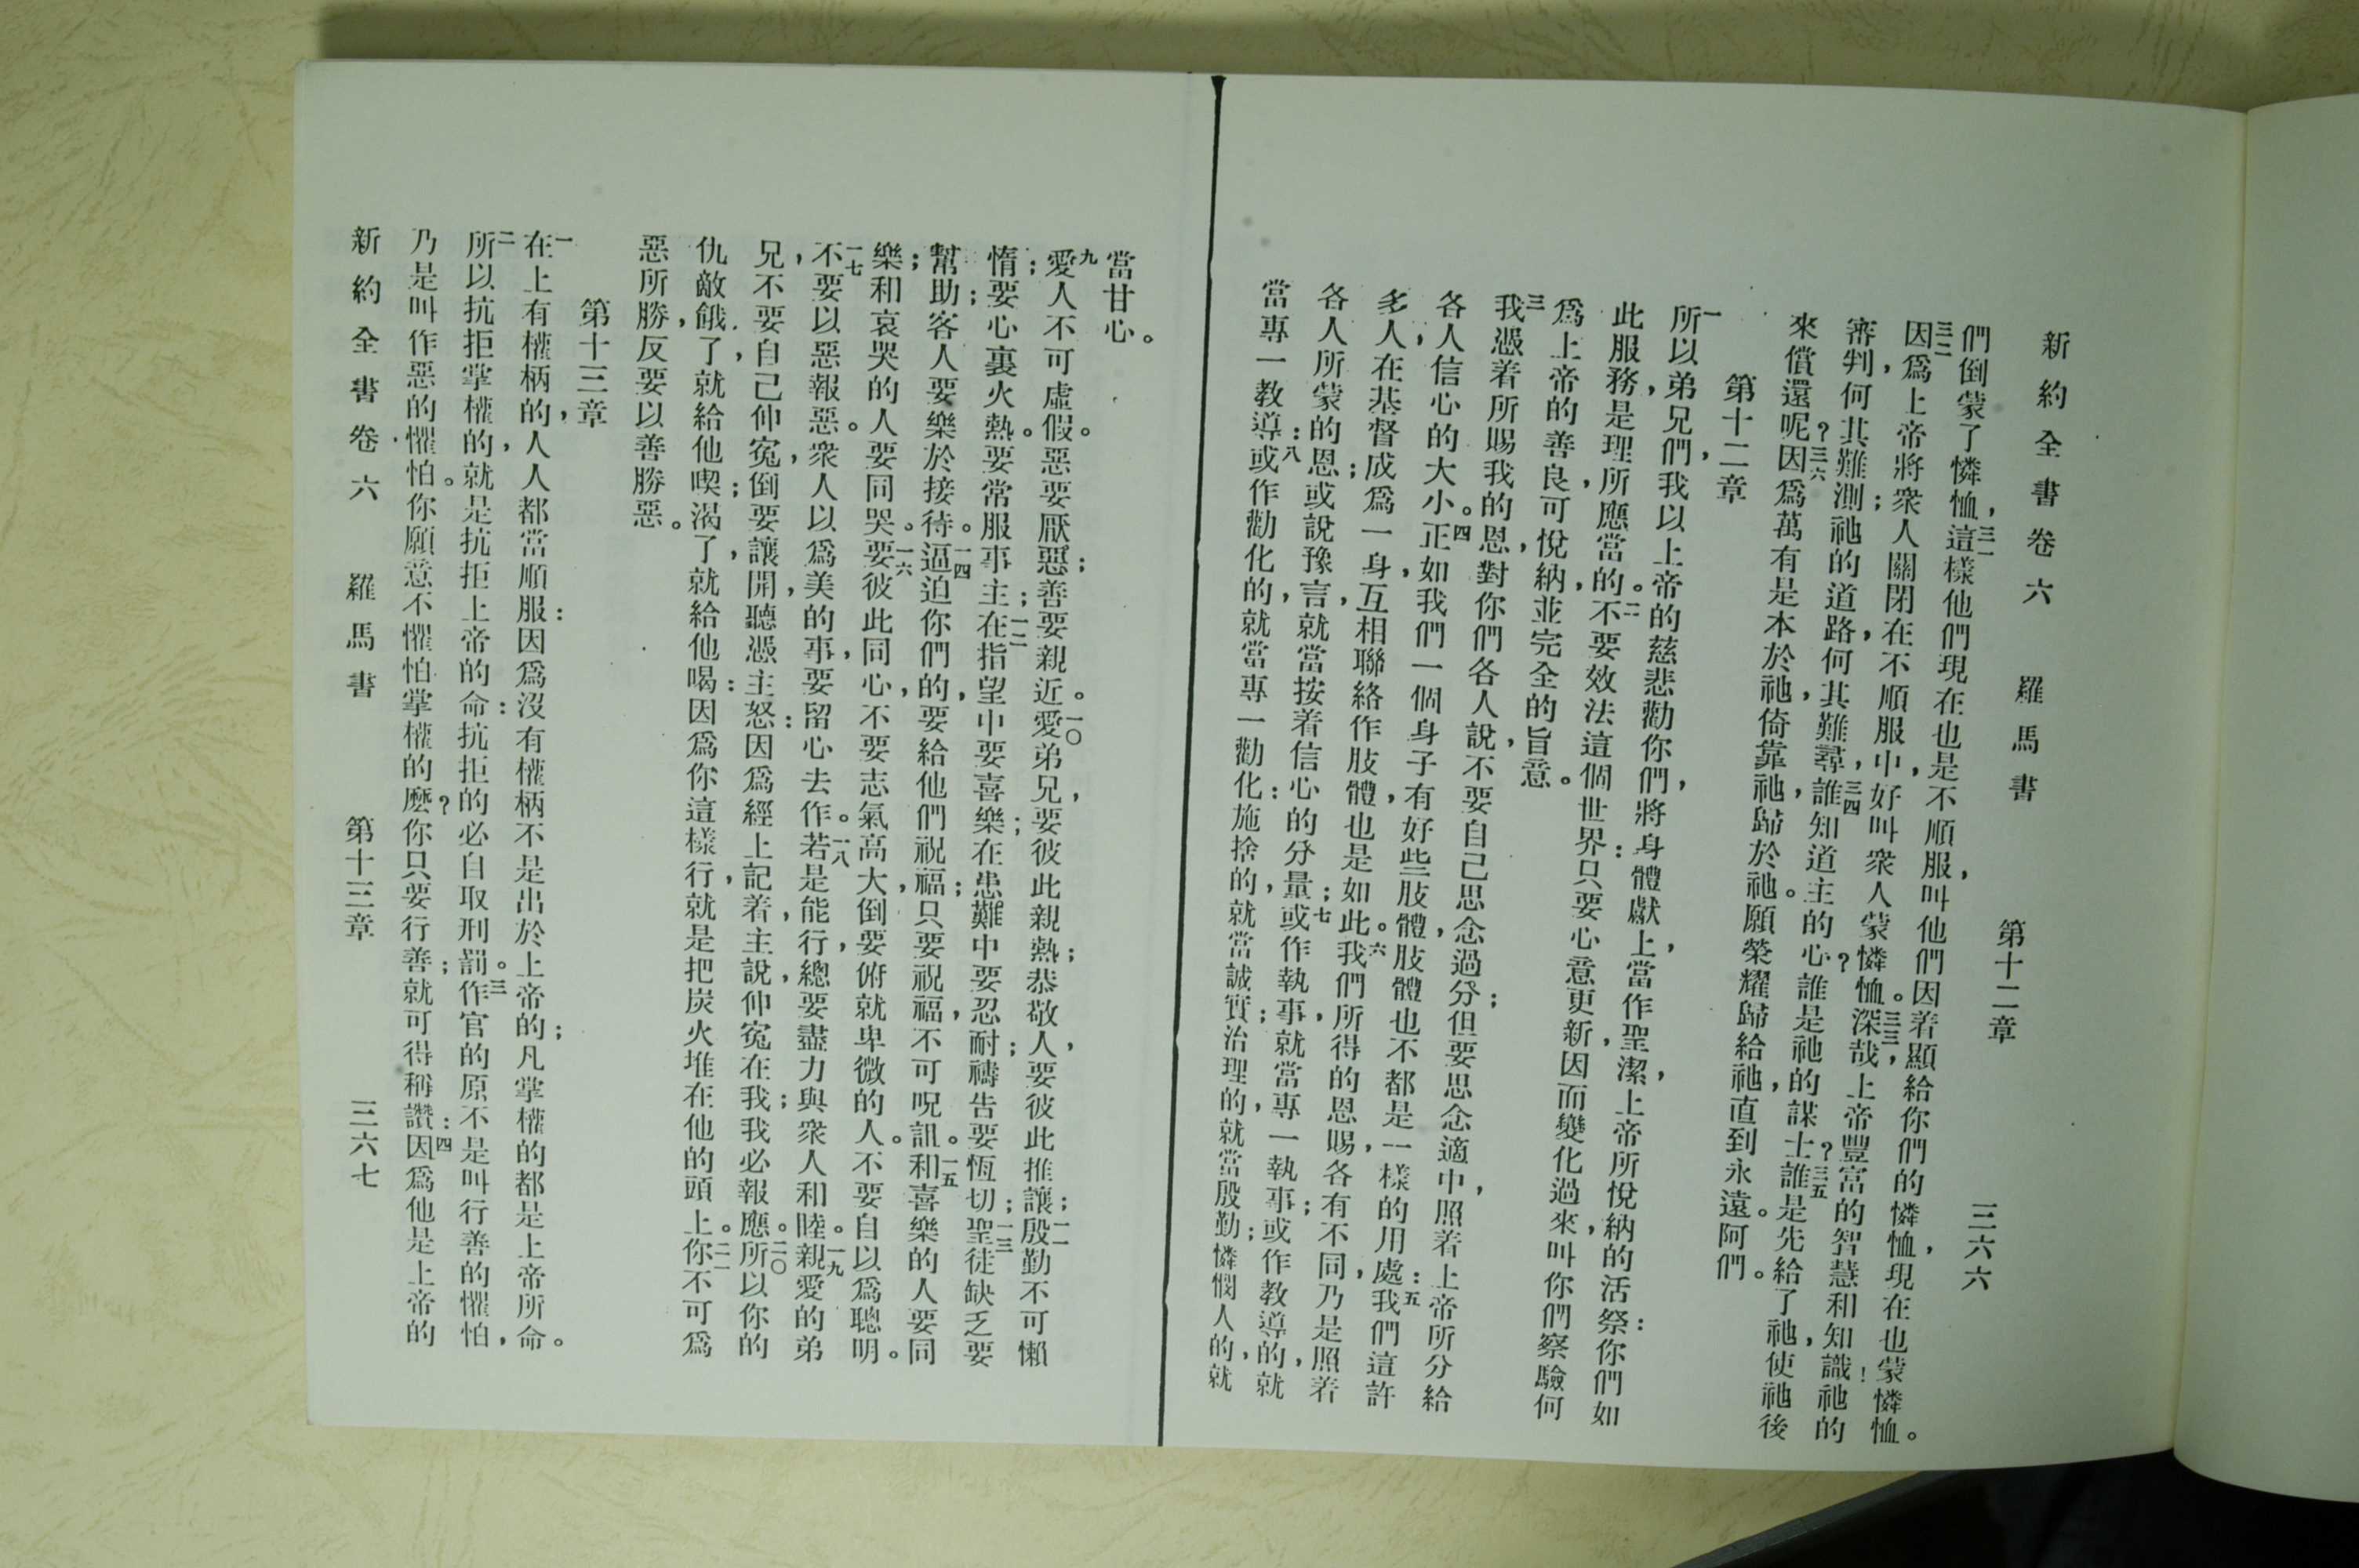 新約全書卷六　羅馬書　第十二章　三六六
們倒蒙了憐恤，三一這樣他們現在也是不順服，叫他們因着顯給你們的憐恤，現在也蒙憐恤。
三二因爲上帝將衆人關閉在不順服中，好叫衆人蒙憐恤。三三深哉，上帝豐富的智慧和知識！祂的
審判，何其難測；祂的道路，何其難尋，三四誰知道主的心？誰是祂的謀士？三五誰是先給了祂，使祂後
來償還呢？三六因爲萬有是本於祂，倚靠祂，歸於祂。願榮耀歸給祂，直到永遠。阿們。
第十二章
一所以弟兄們，我以上帝的慈悲勸你們，將身體獻上，當作聖潔，上帝所悅納的活祭：你們如
此服務，是理所應當的。二不要效法這個世界：只要心意更新，因而變化過來，叫你們察驗何
爲上帝的善良，可悅納，並完全的旨意。
三我憑着所賜我的恩，對你們各人說，不要自己思念過分；但要思念適中，照着上帝所分給
各人信心的大小。四正如我們一個身子有好些肢體，肢體也不都是一樣的用處：五我們這許
多人，在基督成爲一身，互相聯絡作肢體，也是如此。六我們所得的恩賜，各有不同，乃是照着
各人所蒙的恩；或說豫言，就當按着信心的分量；七或作執事，就當專一執事；或作教導的，就
當專一教導：八或作勸化的，就當專一勸化：施捨的，就當誠實；治理的，就當殷勤；憐憫人的，就
當甘心。
九愛人不可虛假。惡要厭惡；善要親近。一〇愛弟兄，要彼此親熱；恭敬人，要彼此推讓；一一殷勤不可懶
惰；要心裏火熱。要常服事主；一二在指望中要喜樂；在患難中要忍耐；禱告要恆切；一三聖徒缺乏要
幫助；客人要樂於接待。一四逼迫你們的，要給他們祝福；只要祝福，不可呪詛。一五和喜樂的人要同
樂；和哀哭的人要同哭。一六要彼此同心，不要志氣高大，倒要俯就卑微的人。不要自以爲聰明。
一七不要以惡報惡。衆人以爲美的事，要留心去作。一八若是能行，總要盡力與衆人和睦。一九親愛的弟
兄，不要自己伸寃，倒要讓開，聽憑主怒：因爲經上記着，主說，伸寃在我；我必報應。二〇所以你的
仇敵餓了，就給他喫；渴了，就給他喝：因爲你這樣行，就是把炭火堆在他的頭上。二一你不可爲
惡所勝，反要以善勝惡。
第十三章
一在上有權柄的，人人都當順服：因爲沒有權柄不是出於上帝的；凡掌權的都是上帝所命。
二所以抗拒掌權的，就是抗拒上帝的命：抗拒的必自取刑罰。三作官的原不是叫行善的懼怕，
乃是叫作惡的懼怕。你願意不懼怕掌權的麼？你只要行善；就可得稱讚：四因爲他是上帝的
新約全書卷六　羅馬書　第十三章　三六七